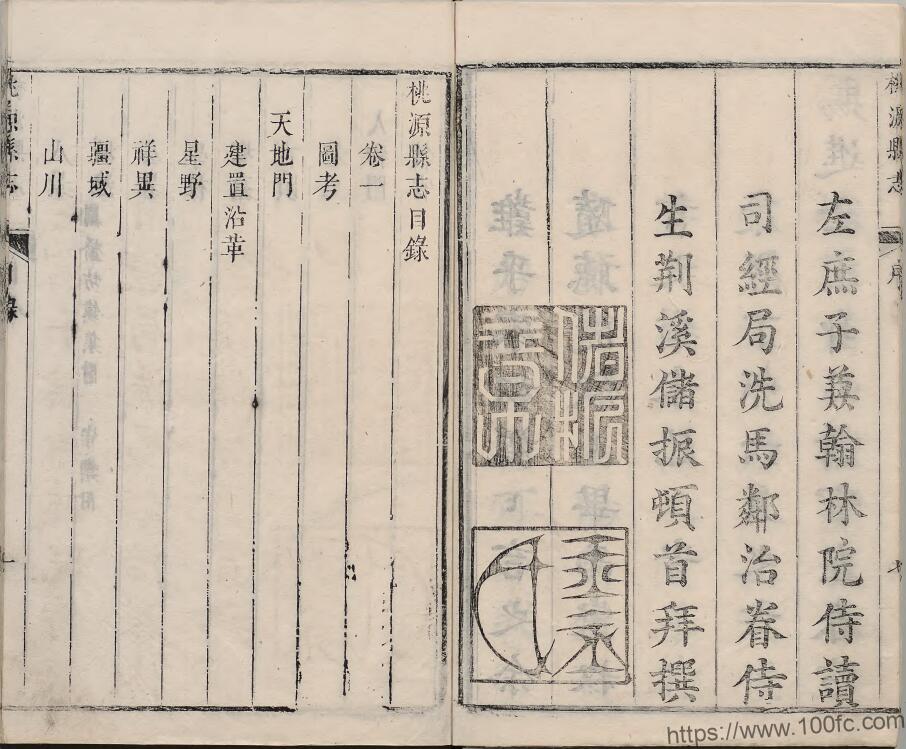 桃源縣志
序
七
左庶子兼翰林院侍讀
司經局洗馬鄰治眷侍
生荆溪儲振頓首拜撰
桃源縣志目錄
卷一
圖考
天地門
建置沿革
星野
祥異
疆域
山川
桃源縣志
目錄
一
https://www.100fc.com